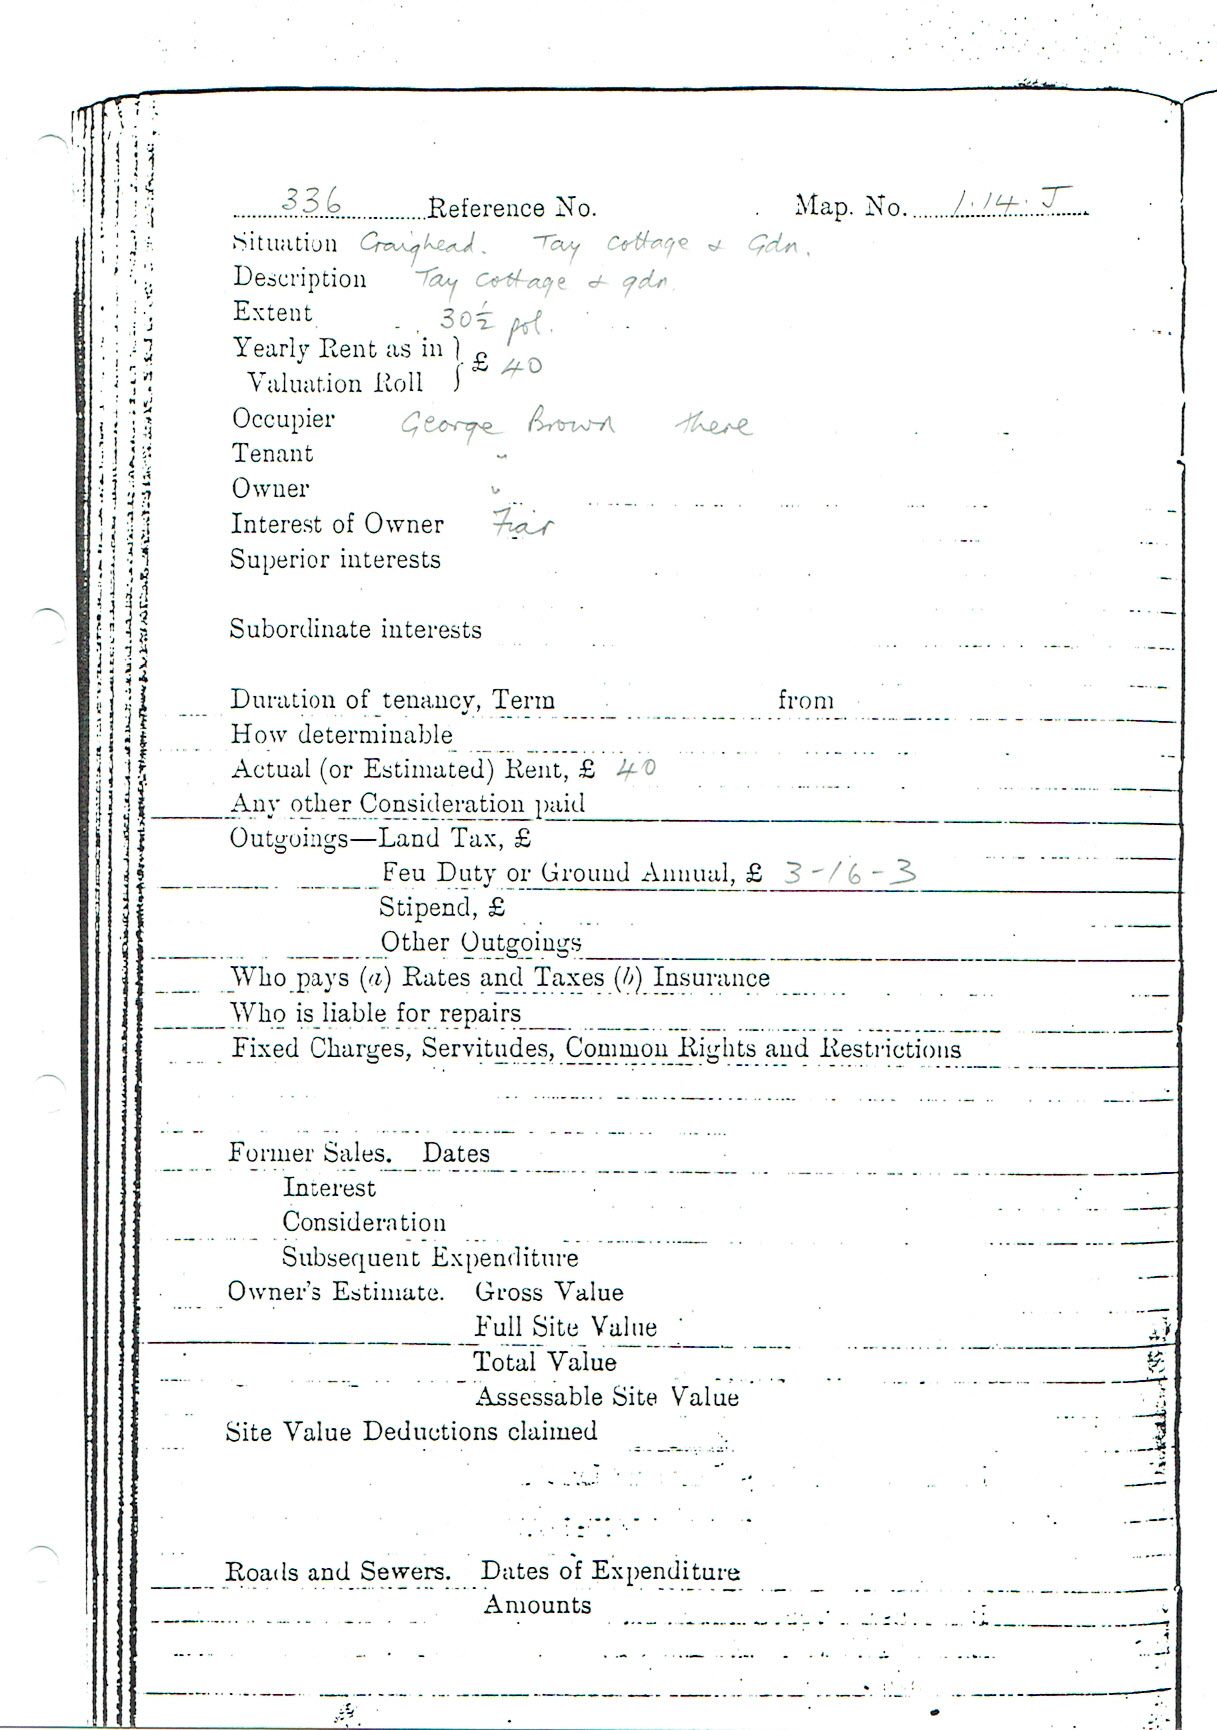 336 Reference No. Map. No. 1.14.J
Situation Craighead. Tay Cottage & Gdn.
Description Tay Cottage & gdn.
Extent 30½ pol.
Yearly Rent as in } £ 40
Valuation Roll
Occupier George Brown there
Tenant "
Owner "
Interest of Owner Fiar
Superior interests
Subordinate interests
Duration of tenancy, Term from
How determinable
Actual (or Estimated) Rent, £ 40
Any other Consideration paid
Outgoings—Land Tax, £
Feu Duty or Ground Annual, £ 3-16-3
Stipend, £
Other Outgoings
Who pays (a) Rates and Taxes (b) Insurance
Who is liable for repairs
Fixed Charges, Servitudes, Common Rights and Restrictions
Former Sales. Dates
Interest
Consideration
Subsequent Expenditure
Owner's Estimate. Gross Value
Full Site Value
Total Value
Assessable Site Value
Site Value Deductions claimed
Roads and Sewers. Dates of Expenditure
Amounts